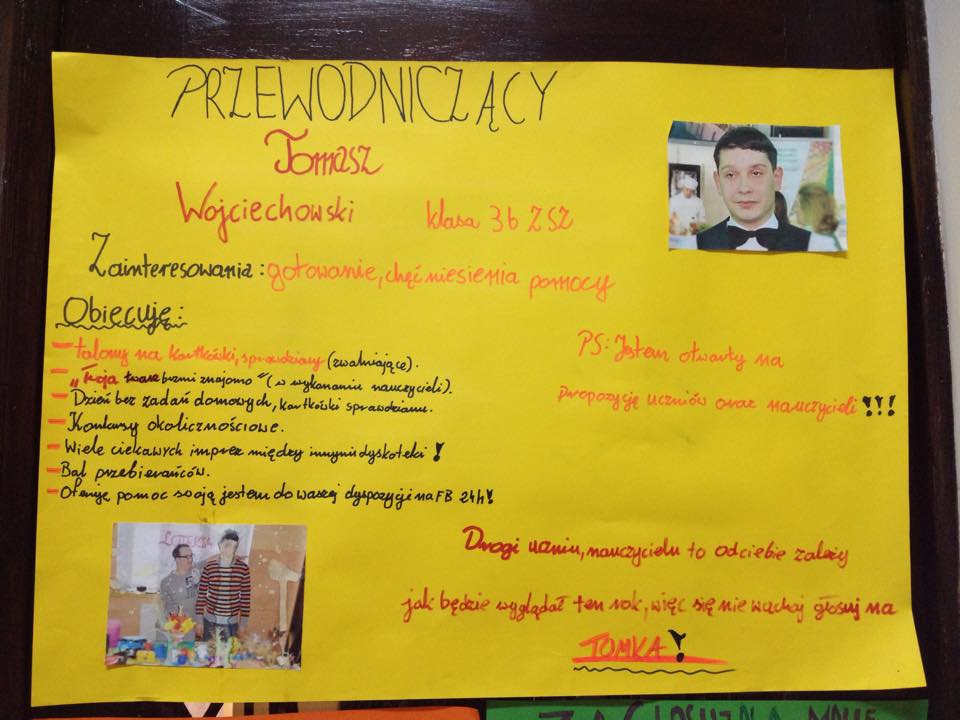 PRZEWODNICZĄCY
Tomasz
Wojciechowski klasa 3b ZSZ
Zainteresowania: gotowanie, chęć niesienia pomocy
Obiecuję:
- talony na kartkówki, sprawdziany (zwalniające).
- "Twoja twarz brzmi znajomo" (w wykonaniu nauczycieli).
- Dzień bez zadań domowych, kartkówki sprawdzianu.
- Konkursy okolicznościowe.
- Wiele ciekawych imprez między innymi dyskoteki!
- Bal przebierańców.
- Oferuję pomoc swoją jestem do waszej dyspozycji na FB 24h!
PS: Jestem otwarty na
propozycję uczniów oraz nauczycieli!!!
LOTERIA
Drogi uczniu, nauczycielu to odciebie zależy
jak będzie wyglądał ten rok, więc się nie wachaj głosuj na
TOMKA!